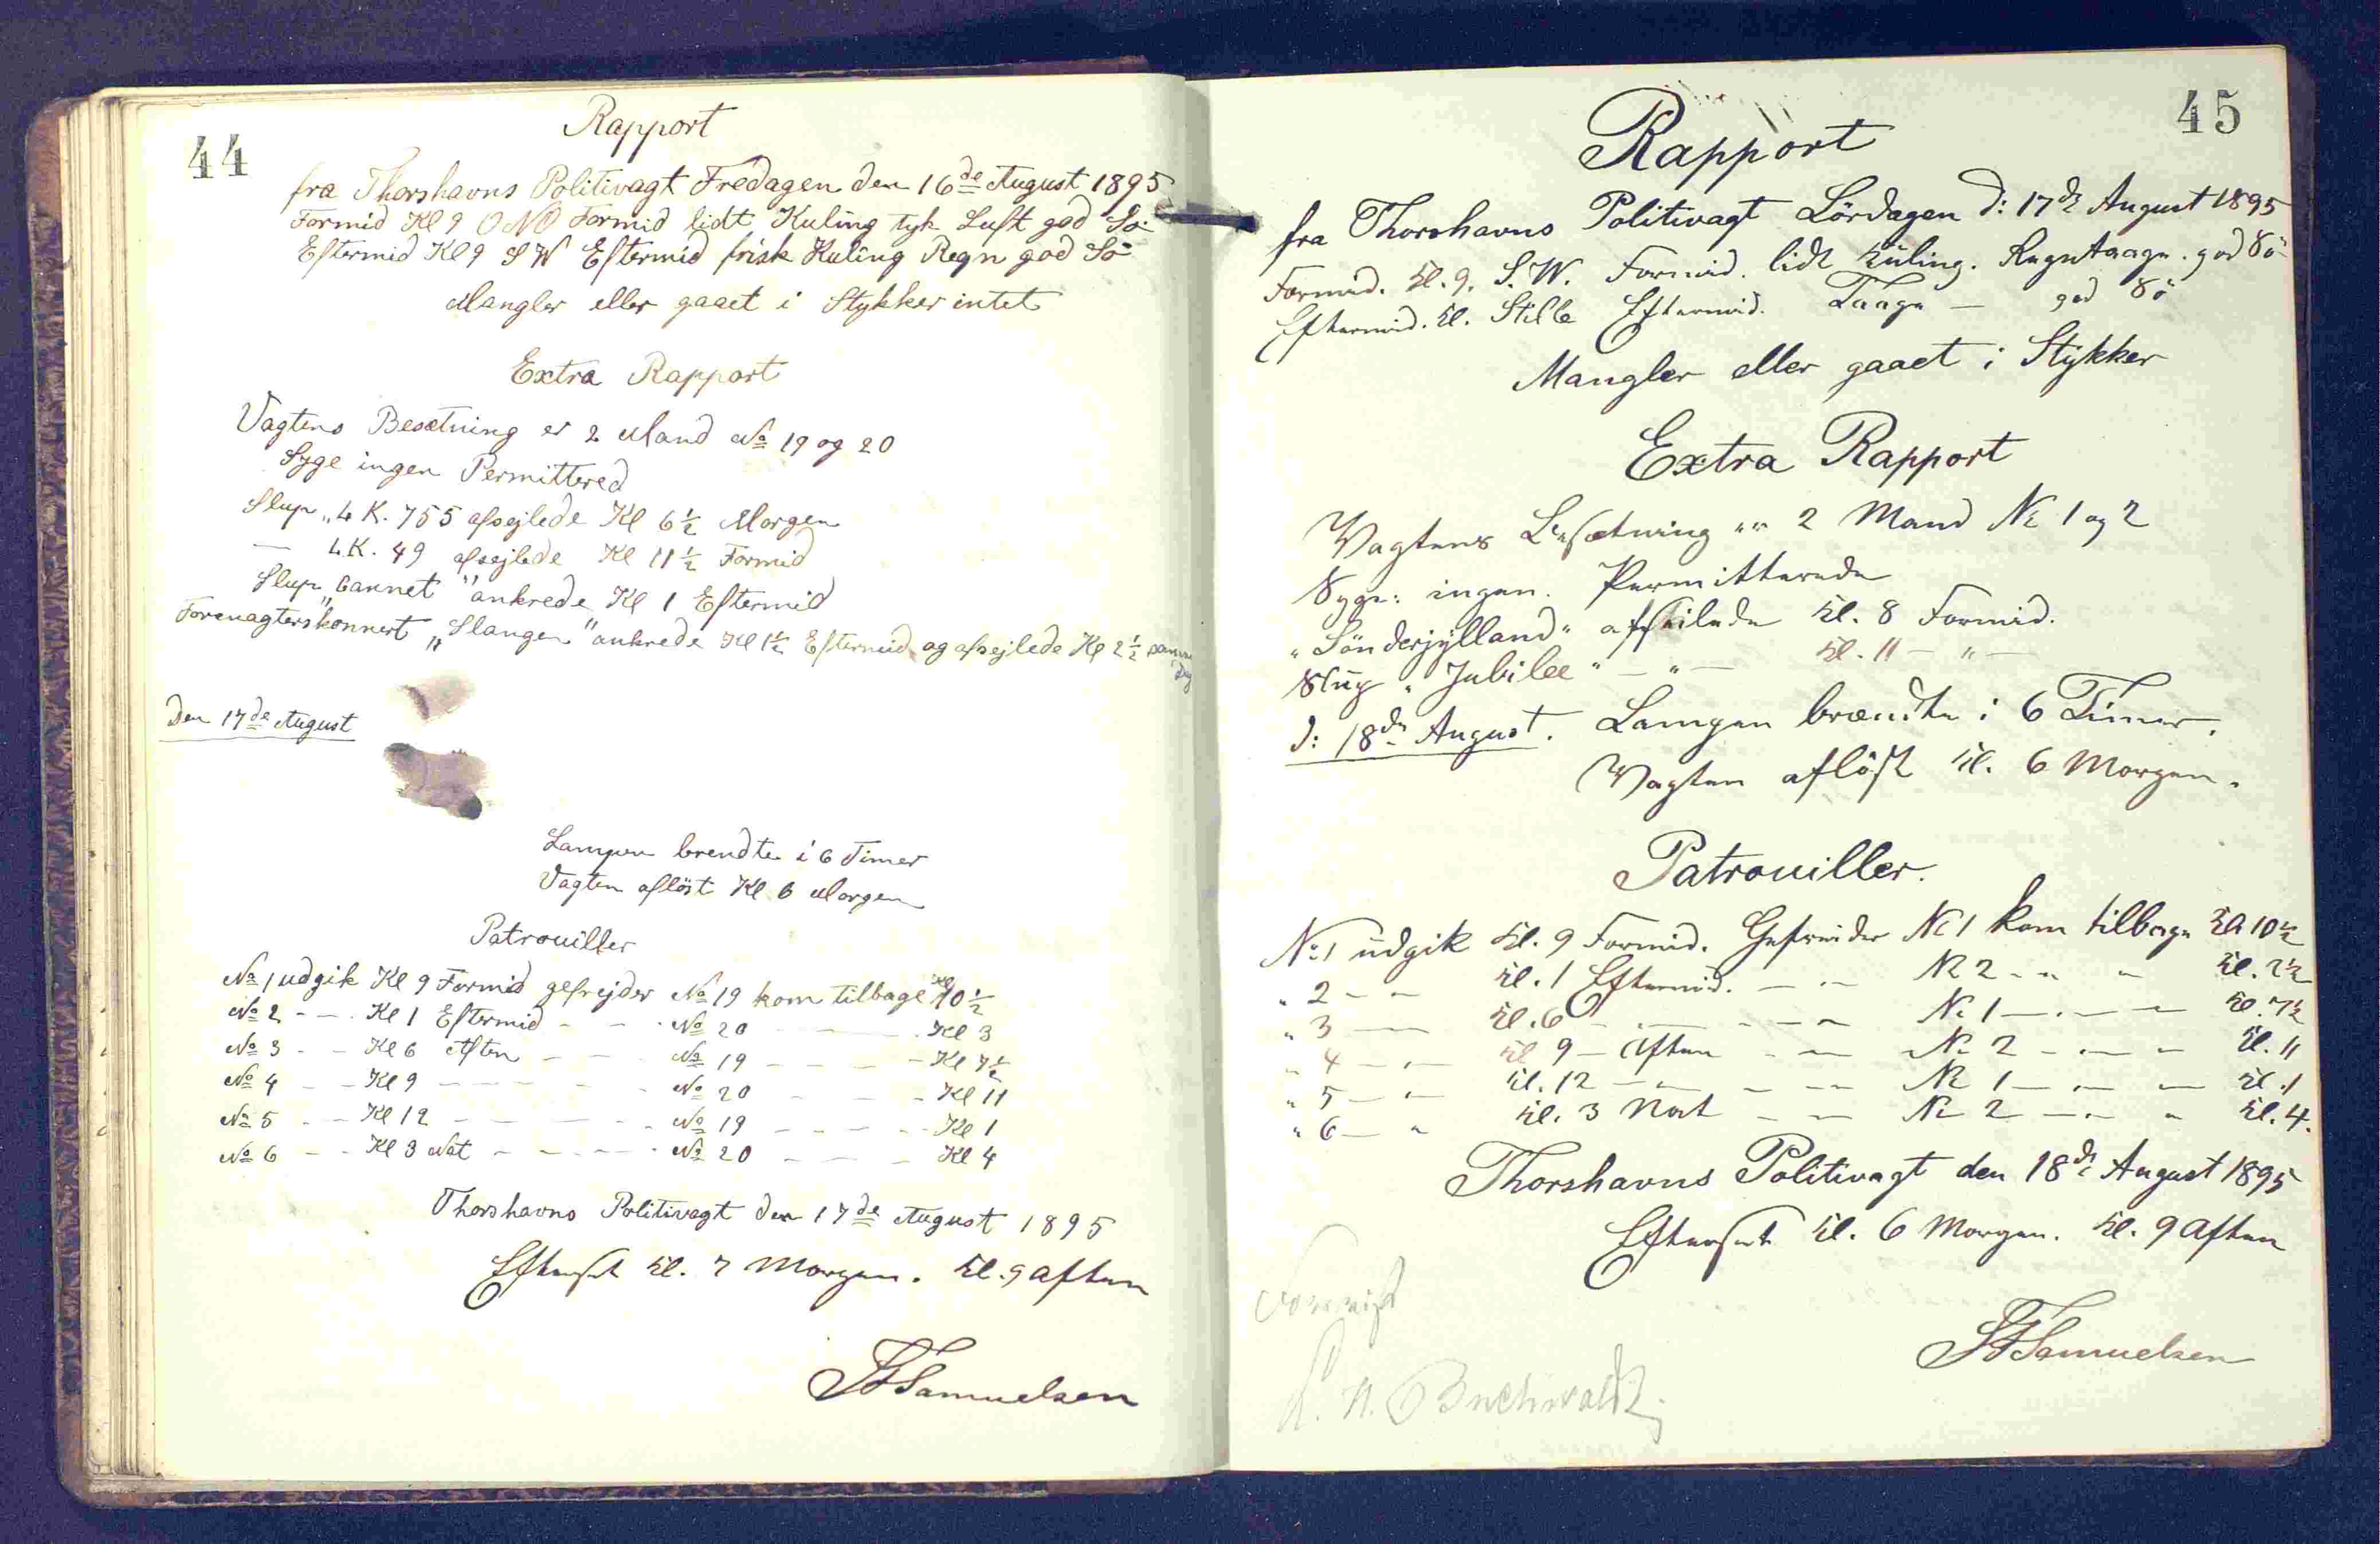 44
Rapport
fra Thorshavns Politivagt Fredagen den 16de August 1895
Formid Kl 9 ONO Formid lidt Kuling tyk Luft god Sö
Eftermid Kl 9 SW Eftermid frisk Kuling Regn god Sö
Mangler eller gaaet i Stykker intet
Extra Rapport
Vagtens Besætning er 2 Mand No 19 og 20
Syge ingen Permittered
Slup „LK. 755 afsejlede Kl 6½ Morgen
— LK. 49 afsejlede Kl 11½ Formid
Slup „Gannet" ankrede Kl 1 Eftermid
„Slangen" ankrede Kl 1½ Eftermid og afsejlede Kl 2½ samme Dag
Den 17de August
Lampen brendte i 6 Timer
Vagten aflöst Kl 6 Morgen
Patrouiller
No 1 udgik Kl 9 Formid gefrejder No 19 kom tilbage Kl 10½
No 2 - - Kl 1 Eftermid - - No 20 - - - Kl 3
No 3 - - Kl 6 Aften - - No 19 - - - Kl 7½
No 4 - - Kl 9 - - - - No 20 - - - Kl 11
No 5 - - Kl 12 - - - - No 19 - - - Kl 1
No 6 - - Kl 3 Nat - - - - No 20 - - - Kl 4
Thorshavns Politivagt den 17de August 1895
Efterset Kl. 7 Morgen. Kl. 9 Aften
Samuelsen
45
Rapport
fra Thorshavns Politivagt Lördagen d: 17de August 1895
Formid. Kl. 9. S.W. Formid. lidt Kuling. Regntaage. god Sö
Eftermid. Kl. Stille Eftermid. Taage — god Sö
Mangler eller gaaet i Stykker
Extra Rapport
Vagtens Besætning er 2 Mand No 1 og 2
Syge: ingen. Permitterede
„Sönderjylland" afseilede Kl. 8 Formid.
Slup „Jubilee" — " — Kl. 11 — " —
d: 18de August. Lampen brændte i 6 Timer.
Vagten aflöst Kl. 6 Morgen.
Patrouiller.
No 1 udgik Kl. 9 Formid. Gefreider No 1 kom tilbage Kl 10½
" 2 - - Kl. 1 Eftermid. — - No 2 - " - Kl. 2½
" 3 — Kl. 6 - - - - No 1 — - — Kl. 7½
" 4 - - Kl 9 - Aften - - No 2 - - - Kl. 11
" 5 - - Kl. 12 - - - - No 1 — - — Kl. 1
" 6 - " Kl. 3 Nat - - No 2 — - " Kl. 4.
Thorshavns Politivagt den 18de August 1895
Efterset Kl. 6 Morgen. Kl. 9 Aften
Samuelsen
Forevist
Buchwaldt.